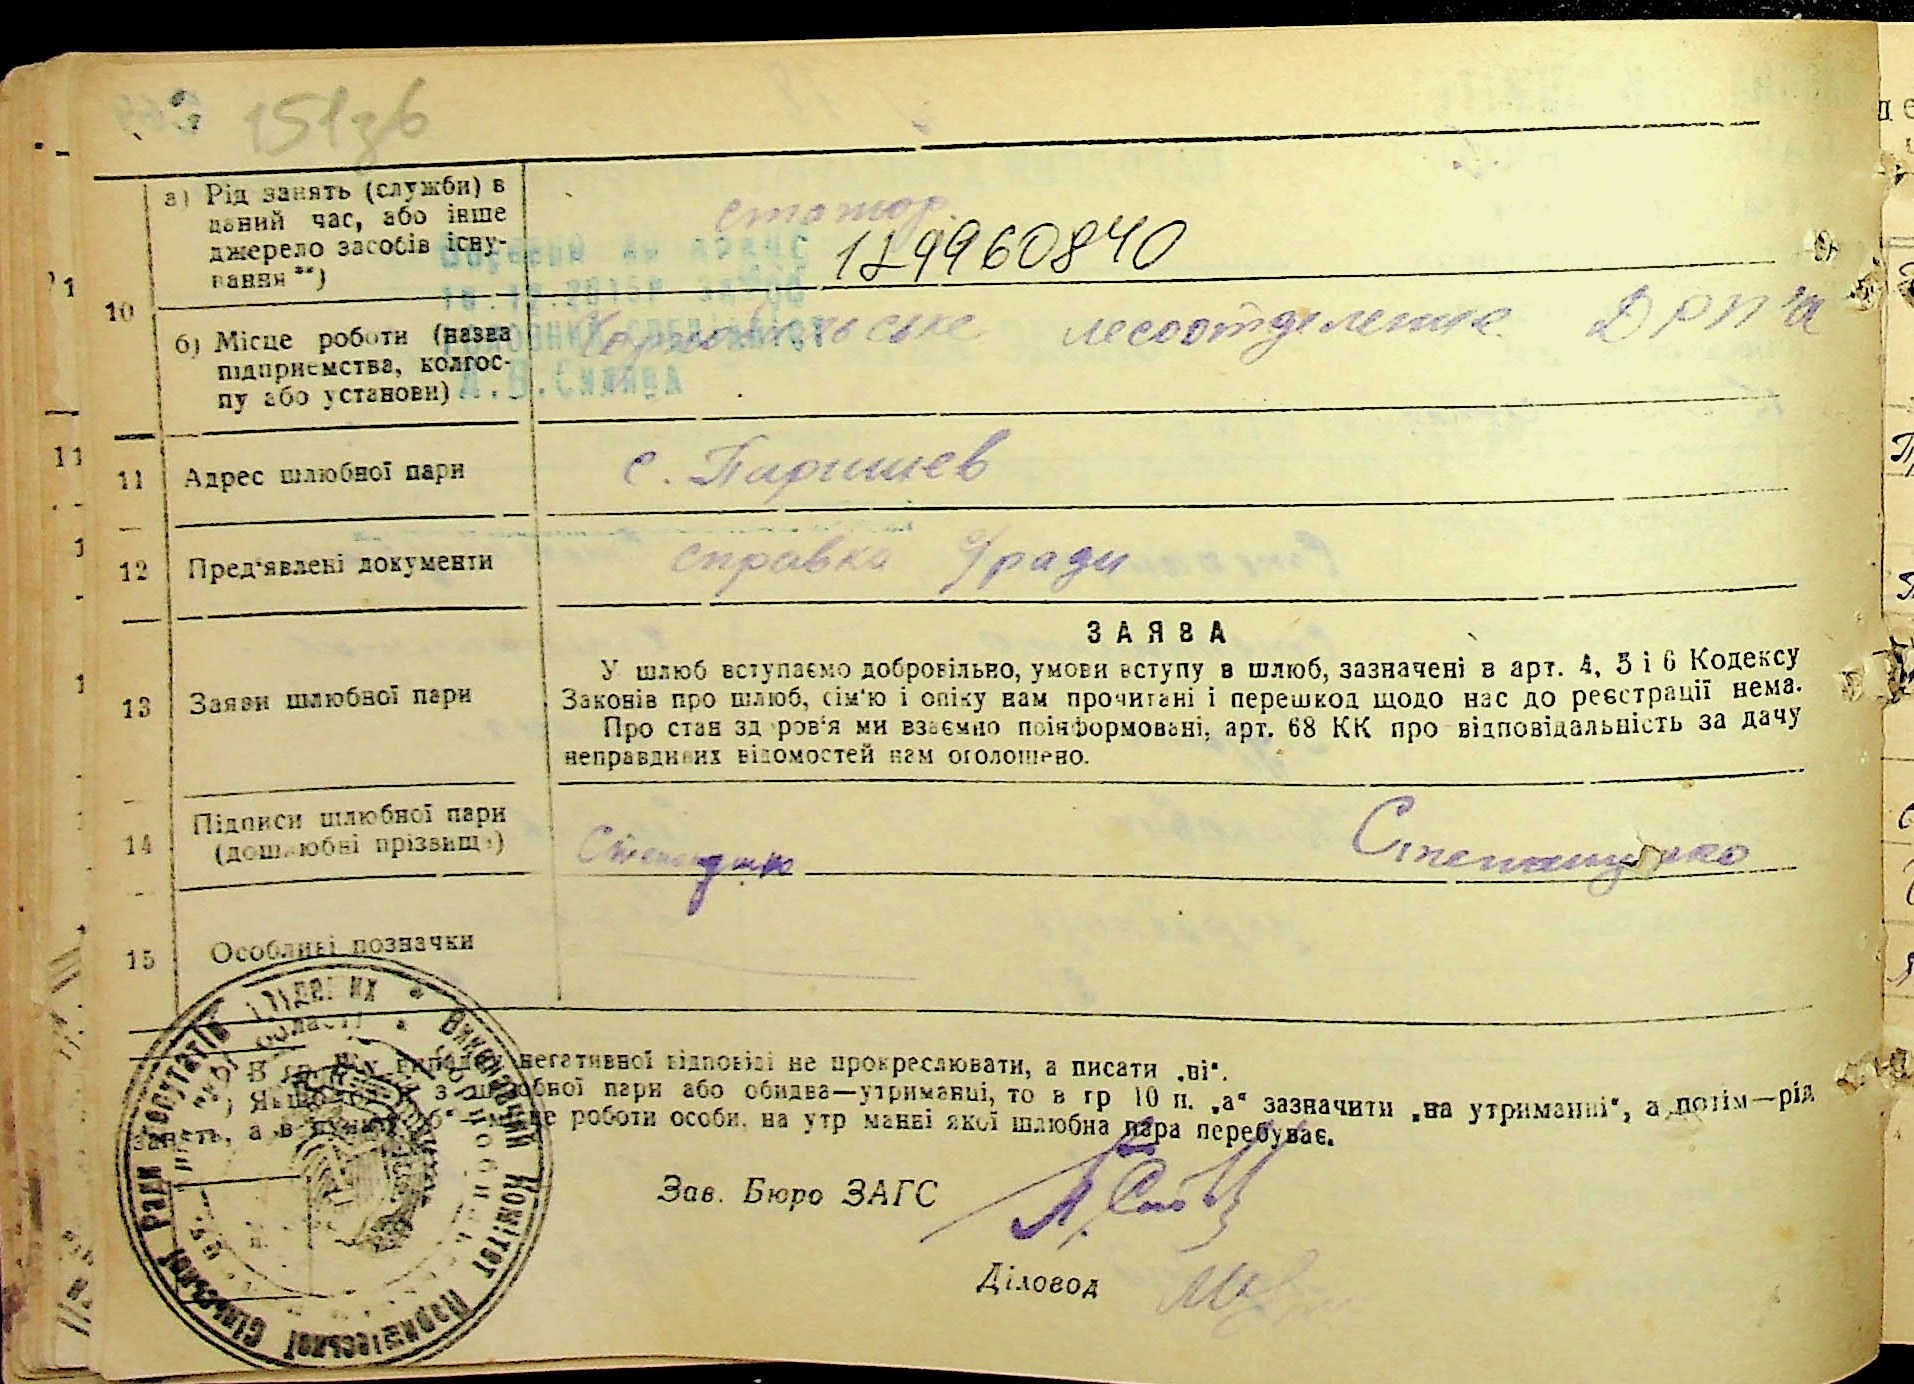 151зв
10
а) Рід занять (службн) в
даний час, або інше
джерело засобів існу-
вання **)
129960840
б) Місце роботи (назва
підприємства, колгос-
пу або установи)
лесоотделение
11 Адрес шлюбної пари
с. Паришев
12 Пред'явлені документи
справка с/ради
ЗАЯВА
13 Заяви шлюбної пари
У шлюб вступаємо добровільно, умови вступу в шлюб, зазначені в арт. 4, 5 і 6 Кодексу
Законів про шлюб, сім'ю і опіку нам прочитані і перешкод щодо нас до реєстрації нема.
Про стан здоров'я ми взаємно поінформовані, арт. 68 КК про відповідальність за дачу
неправдивих відомостей нам оголошено.
14 Підписи шлюбної пари
(дошлюбні прізвища)
Степащенко
15 Особливі позначки
негативної відповіді не прокреслювати, а писати „ні“.
) Якщо з шлюбної пари або обидва—утриманці, то в гр 10 п. „а“ зазначити „на утриманні“, а потім—рід
занять, а в роботи особи, на утриманні якої шлюбна пара перебуває.
Зав. Бюро ЗАГС
Діловод
Виконавчий Комітет Паришівської Сільської Ради депутатів трудящих